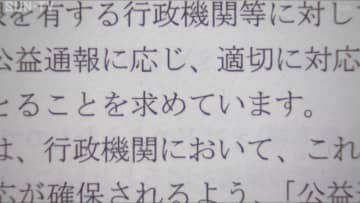 SUN-TV
限を有する行政機関等に対し
公益通報に応じ、適切に対応
とることを求めています。
は、行政機関において、これ
応が確保されるよう、「公益